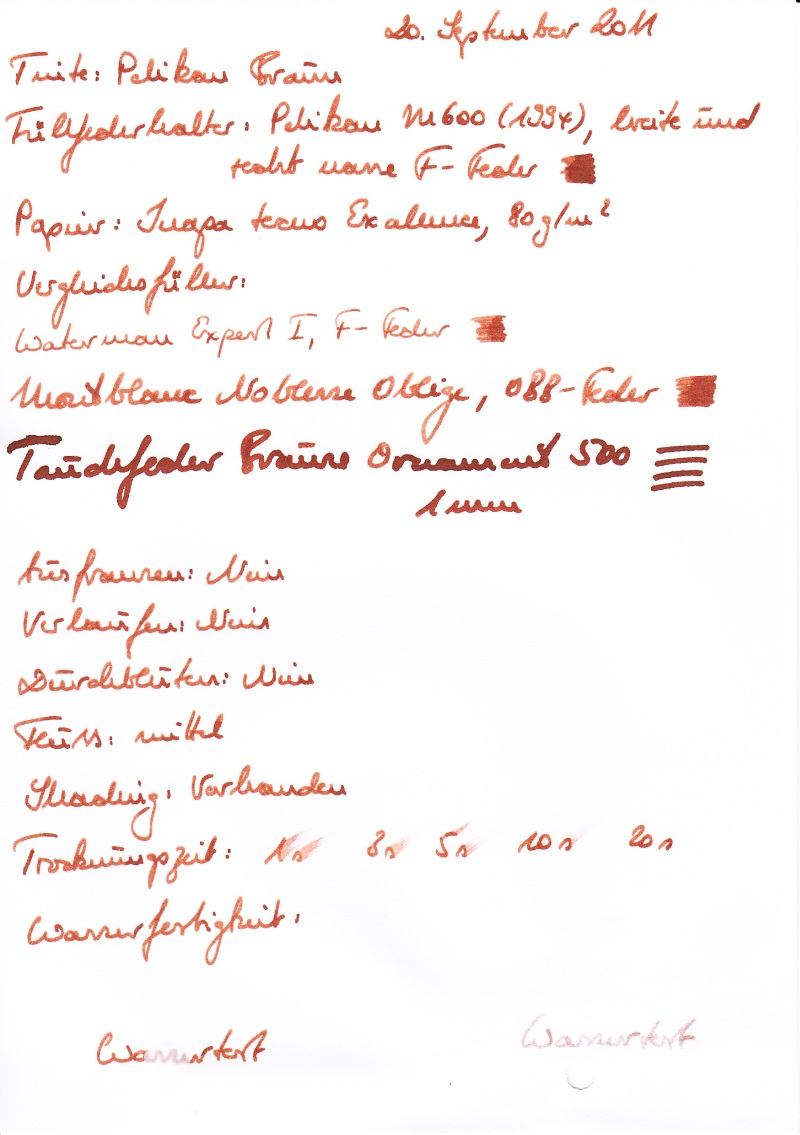 20. September 2011
Tinte: Pelikan Braun
Füllfederhalter: Pelikan M600 (1994), breite und
recht nasse F-Feder
Papier: Inapa tecno Excellence, 80g/m²
Vergleichsfüller:
Waterman Expert I, F-Feder
Montblanc Noblesse Oblige, OBB-Feder
Tauchfeder Brause Ornament 500
1mm
Ausfransen: Nein
Verlaufen: Nein
Durchbluten: Nein
Fluss: mittel
Shading: Vorhanden
Trocknungszeit: 1s 3s 5s 10s 20s
Wasserfestigkeit:
Wassertest Wassertest